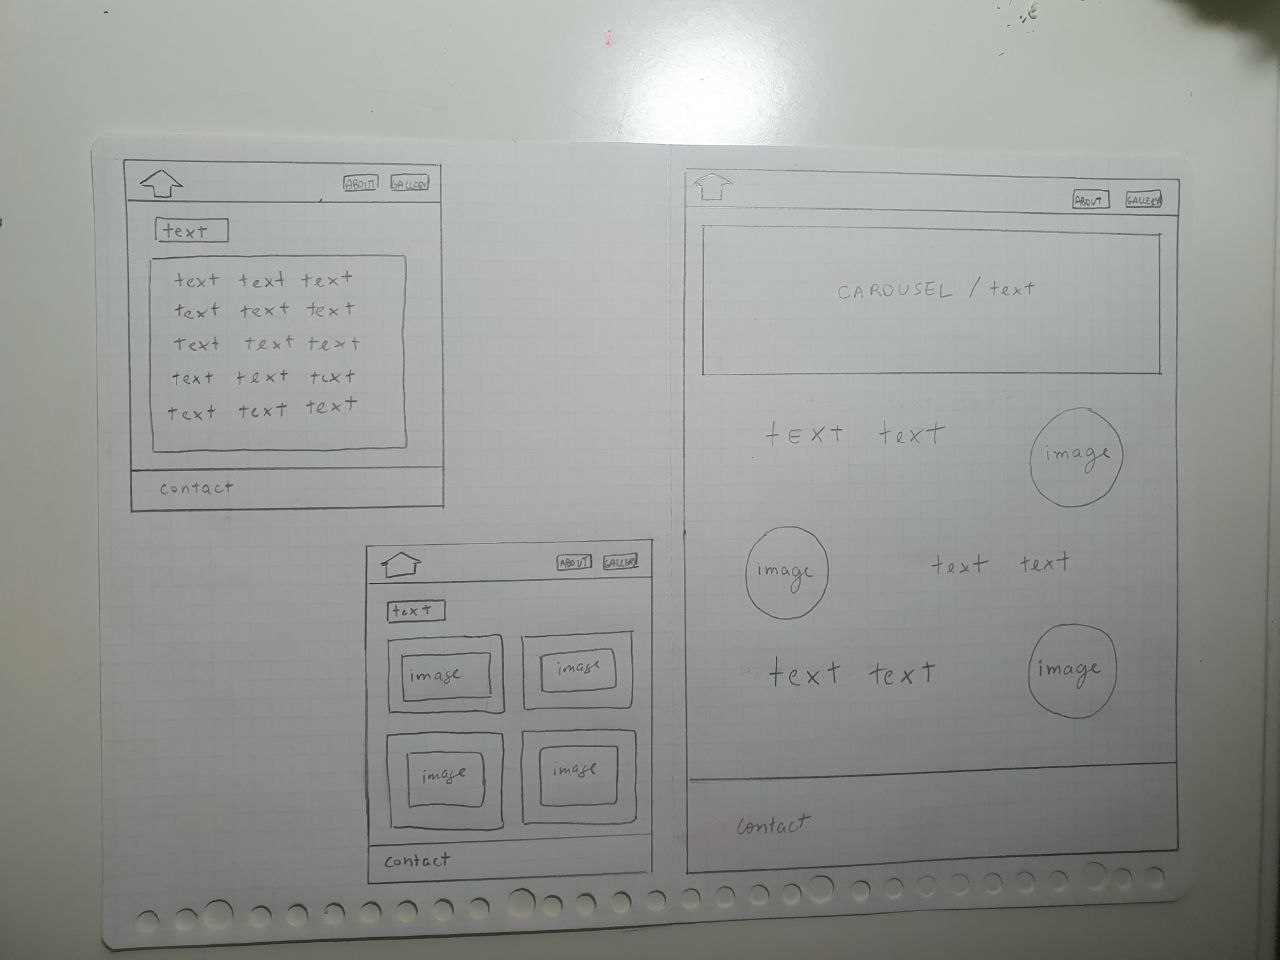 ABOUT GALLERY
text
text text text
text text text
text text text
text text text
text text text
contact
ABOUT GALLERY
text
image image
image image
contact
ABOUT GALLERY
CAROUSEL / text
tExt text image
image text text
text text image
contact